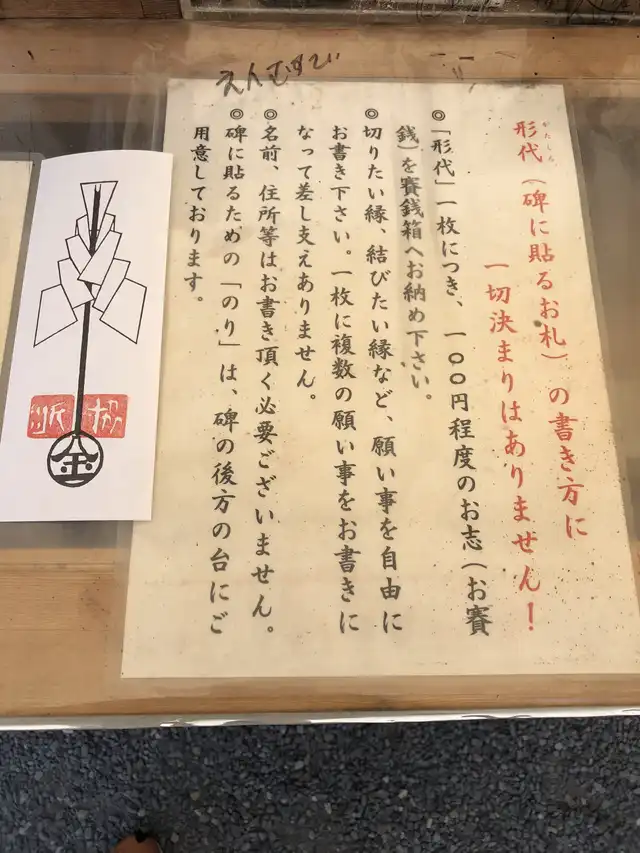 えんむすび
形代（碑に貼るお札）の書き方に
かたしろ
一切決まりはありません！
◎「形代」一枚につき、一〇〇円程度のお志（お賽
銭）を賽銭箱へお納め下さい。
◎切りたい縁、結びたい縁など、願い事を自由に
お書き下さい。一枚に複数の願い事をお書きに
なって差し支えありません。
◎名前、住所等はお書き頂く必要ございません。
◎碑に貼るための「のり」は、碑の後方の台にご
用意しております。
金